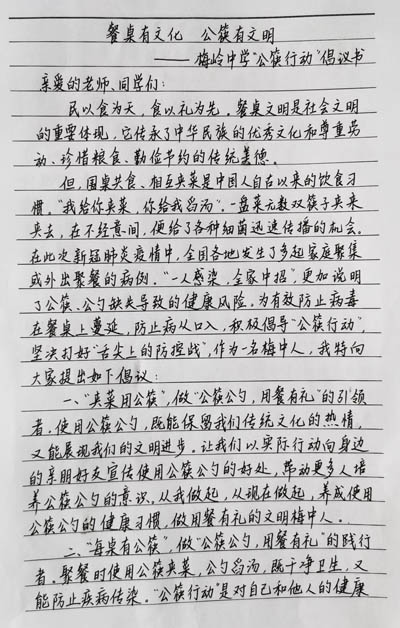 餐桌有文化　公筷有文明
——梅岭中学“公筷行动”倡议书
亲爱的老师、同学们：
民以食为天，食以礼为先。餐桌文明是社会文明
的重要体现，它传承了中华民族的优秀文化和尊重劳
动、珍惜粮食、勤俭节约的传统美德。
但，围桌共食、相互夹菜是中国人自古以来的饮食习
惯。“我给你夹菜，你给我舀汤”，一盘菜无数双筷子夹来
夹去，在不经意间，便给了各种细菌迅速传播的机会。
在此次新冠肺炎疫情中，全国各地发生了多起家庭聚集
或外出聚餐的病例。“一人感染，全家中招”，更加说明
了公筷、公勺缺失导致的健康风险。为有效防止病毒
在餐桌上蔓延，防止病从口入，积极倡导“公筷行动”，
坚决打好“舌尖上的防控战”，作为一名梅中人，我特向
大家提出如下倡议：
一、“夹菜用公筷”，做“公筷公勺，用餐有礼”的引领
者。使用公筷公勺，既能保留我们传统文化的热情，
又能展现我们的文明进步。让我们以实际行动向身边
的亲朋好友宣传使用公筷公勺的好处，带动更多人培
养公筷公勺的意识，从我做起，从现在做起，养成使用
公筷公勺的健康习惯，做用餐有礼的文明梅中人。
二、“每桌有公筷”，做“公筷公勺，用餐有礼”的践行
者。聚餐时使用公筷夹菜，公勺舀汤，既干净卫生，又
能防止疾病传染。“公筷行动”是对自己和他人的健康